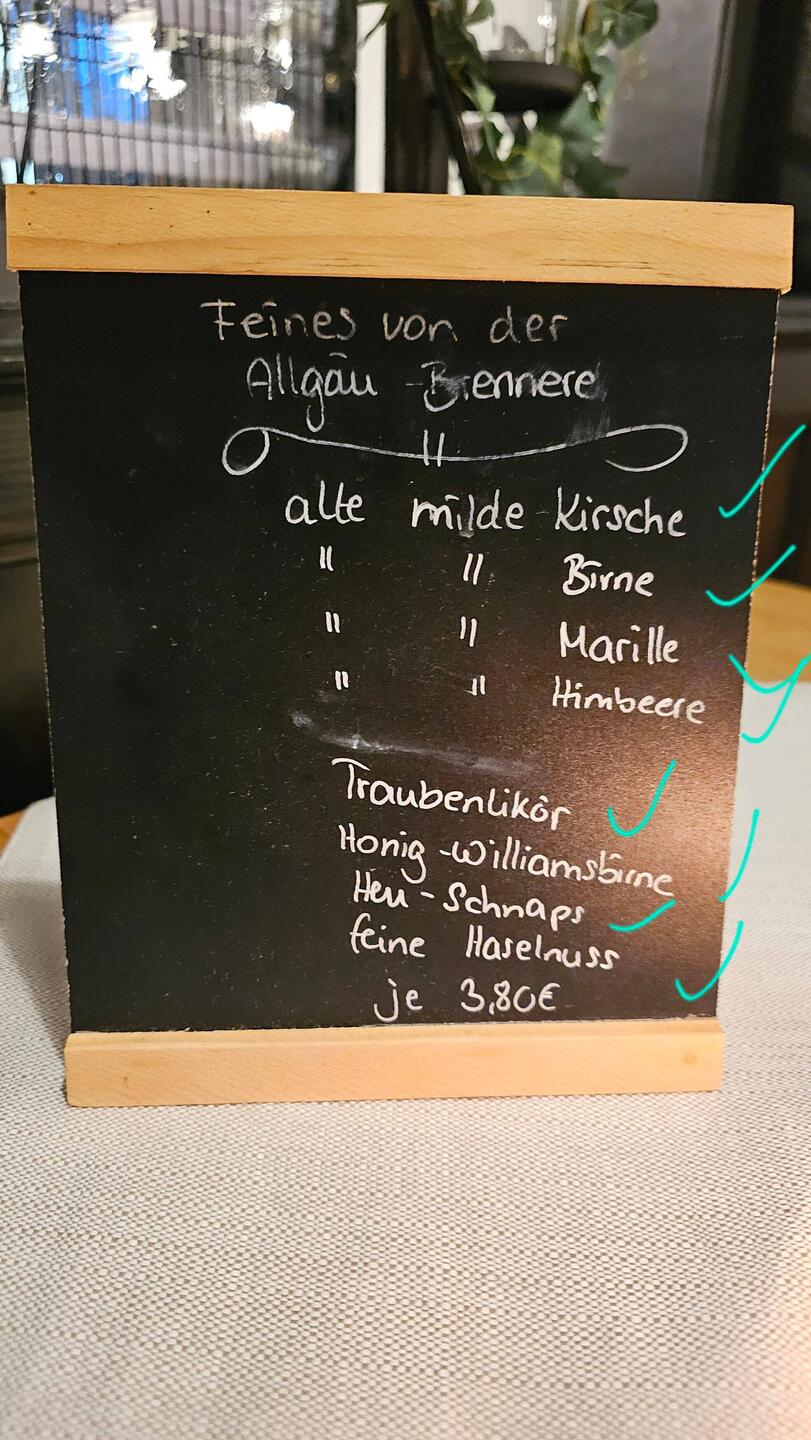 Feines von der
Allgäu-Brennere
alte milde Kirsche
" " Birne
" " Marille
" " Himbeere
Traubenlikör
Honig-Williamsbirne
Heu-Schnaps
feine Haselnuss
je 3,80€